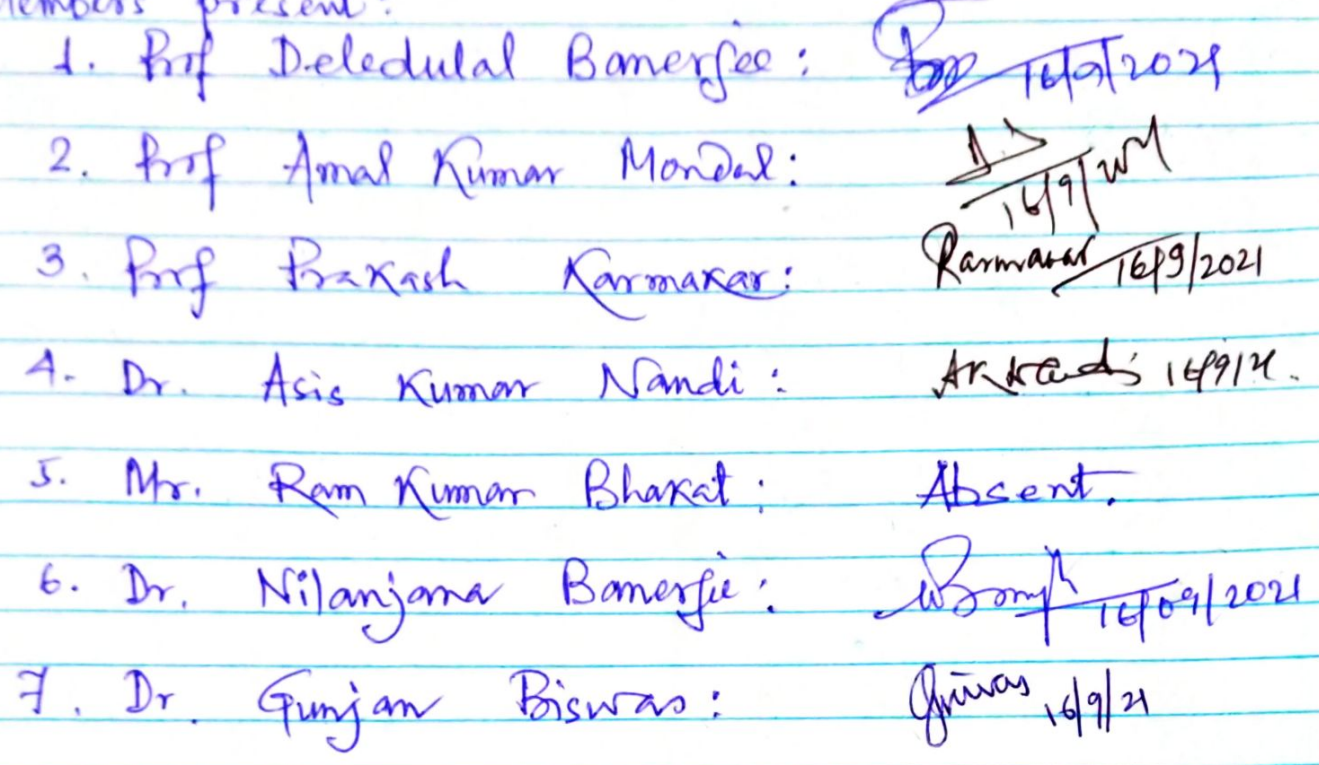 Members present:
1. Prof Deledulal Banerjee: 16/9/2021
2. Prof Amal Kumar Mondal: 16/9/2021
3. Prof Prakash Karmakar: Karmakar 16/9/2021
4. Dr. Asis Kumar Nandi: AK Nandi 16/9/21.
5. Mr. Ram Kumar Bhakat: Absent.
6. Dr. Nilanjana Banerjee: 16/09/2021
7. Dr. Gunjan Biswas: 16/9/21